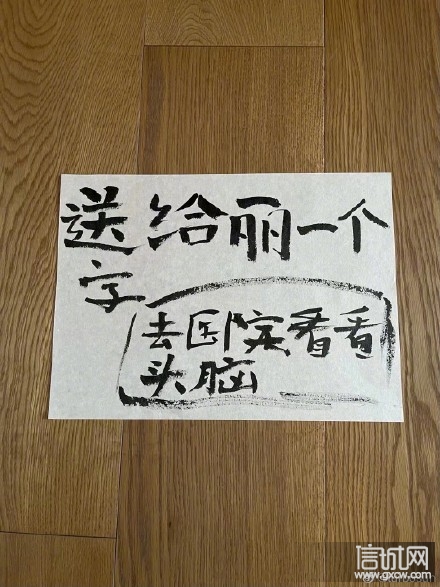 送给丽一个
字
去医院看看
头脑
信诚网
www.gxcw.com